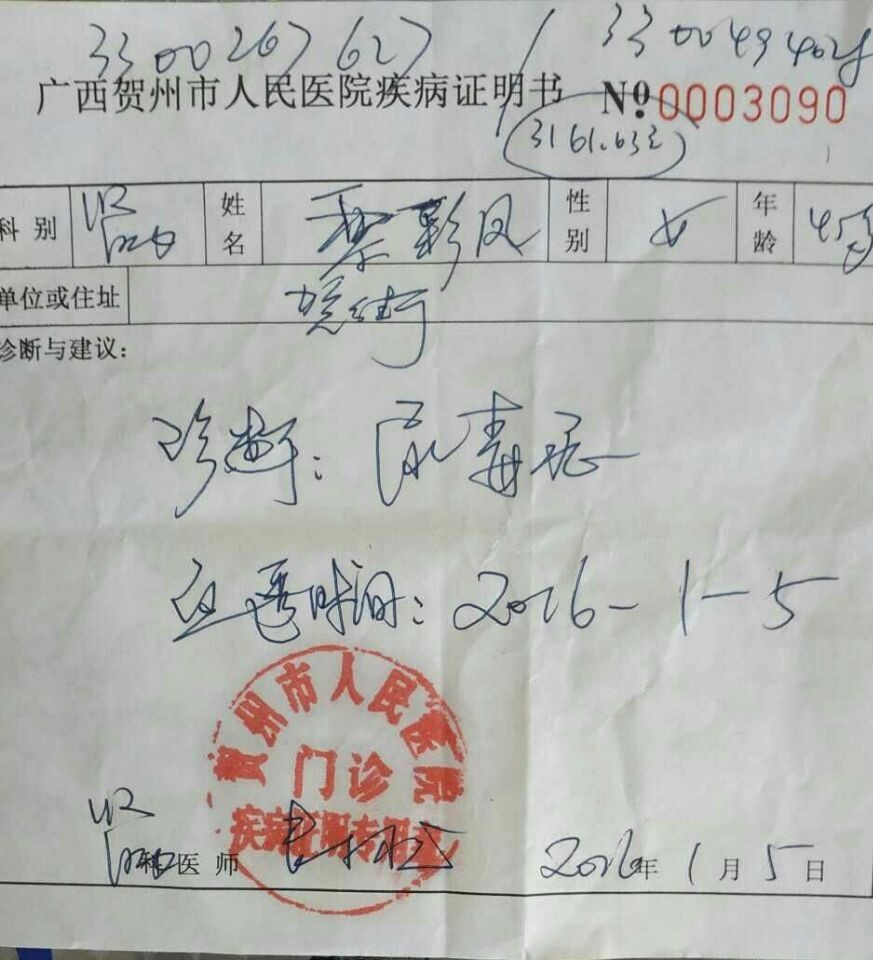 3300267627 / 330049402
广西贺州市人民医院疾病证明书 No 0003090
3161.63元
科别 肾内 姓名 黎彩凤 性别 女 年龄 45岁
单位或住址
诊断与建议：
诊断：尿毒症
应医时间：2016-1-5
贺州市人民医院
门诊
疾病证明专用章
肾内科医师
2016年1月5日